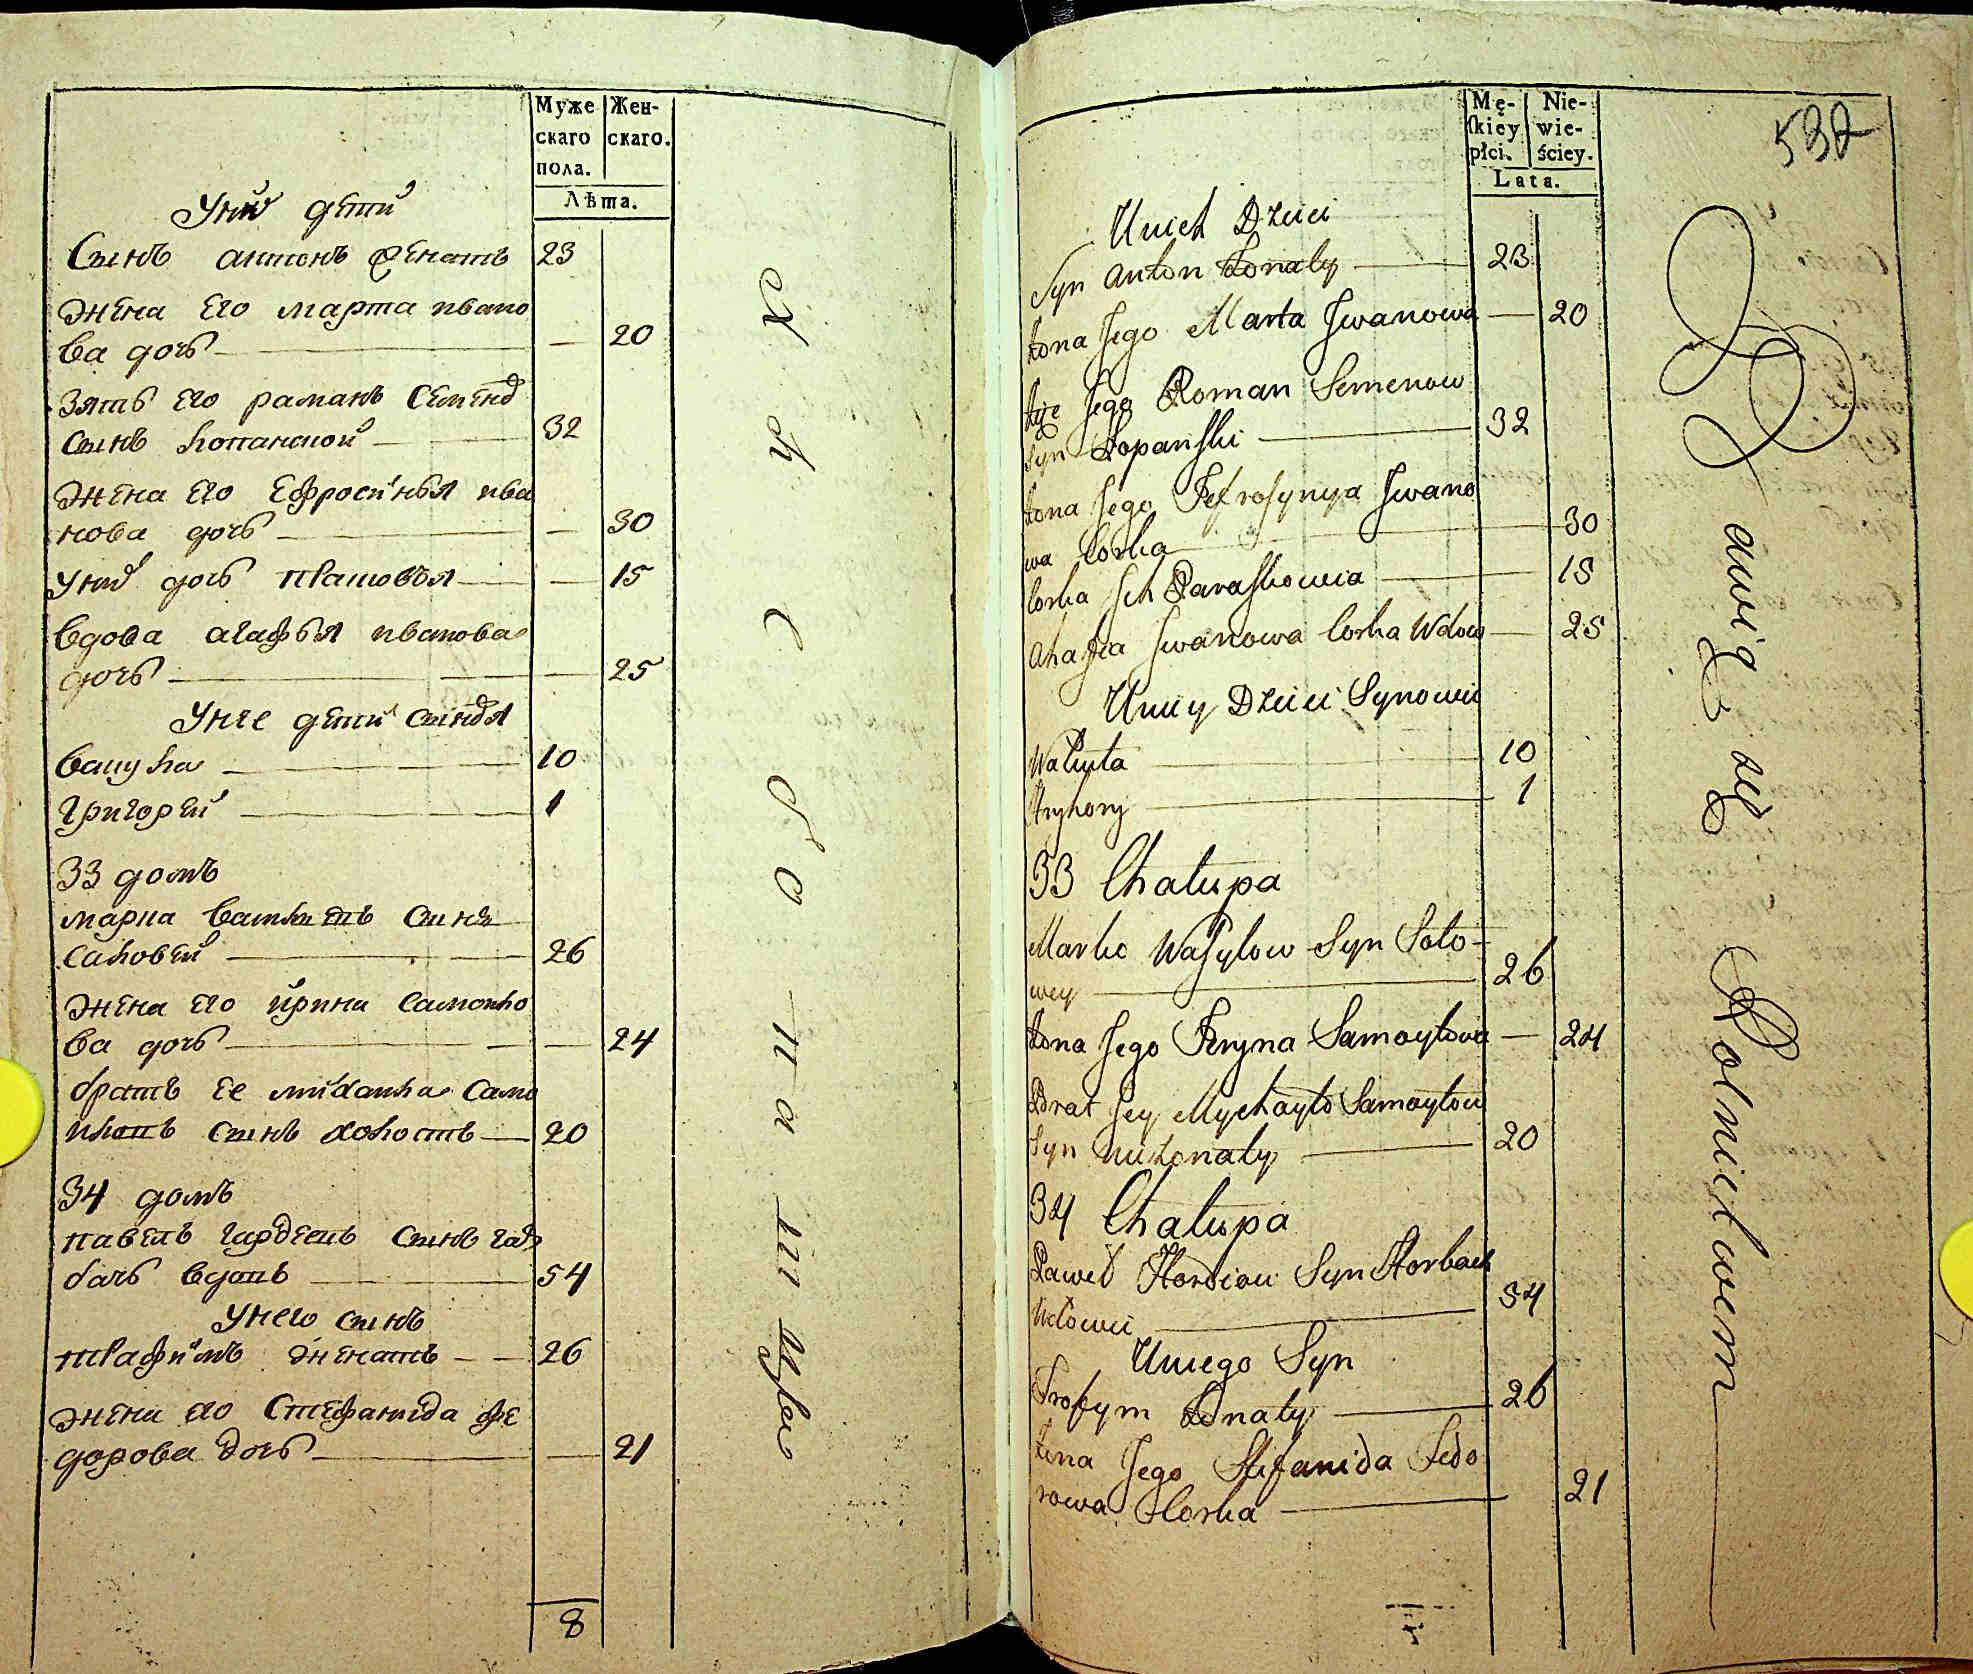 Муже
скаго
пола.
Жен-
скаго.
Лѣта.
У них дети
Сынъ антонъ женатъ 23
жена его марта ивано
ва дочь 20
зять его раманъ семенов
сынъ копанской 32
жена его Ефросинья ива
нова дочь 30
у них дочь прасковья 15
вдова агафья иванова
дочь 25
У нее дети сыновья
10
григорей 1
33 домъ
марка сынъ
саловей 26
жена его ирина самойло
ва дочь 24
братъ ее михайла само
йловъ сынъ холостъ 20
34 домъ
павелъ гардеевъ сынъ гар
бачь вдовъ 54
У него сынъ
трафимъ женатъ 26
жена его Стефанида фе
дорова дочь 21
8
Хлебо-пашцы
Mę-
skiey
płci.
Nie-
wie-
ściey.
Lata.
532
Unich Dzieci
Syn Anton Żonaty 23
Żona Jego Marta Jwanowa 20
Jego Roman Semenow
Syn Kopanski 32
Żona Jego Jefrosynya Jwano
wa Corka 30
Corka Jch Paraskowia 15
Ahafia Jwanowa Corka Wdowa 25
Uniey Dzieci Synowie
10
Hryhory 1
33 Chałupa
Marko Wasylow Syn Soło-
wey 26
Żona Jego Jryna Samoyłowa 24
Brat Jey Mychayło Samoyłow
Syn nieżonaty 20
34 Chałupa
Paweł Hordiow Syn Horbacz
Wdowiec 54
Uniego Syn
Trofym Żonaty 26
Żona Jego Stefanida Fedo
rowa Corka 21
Bawią się Rolnictwem